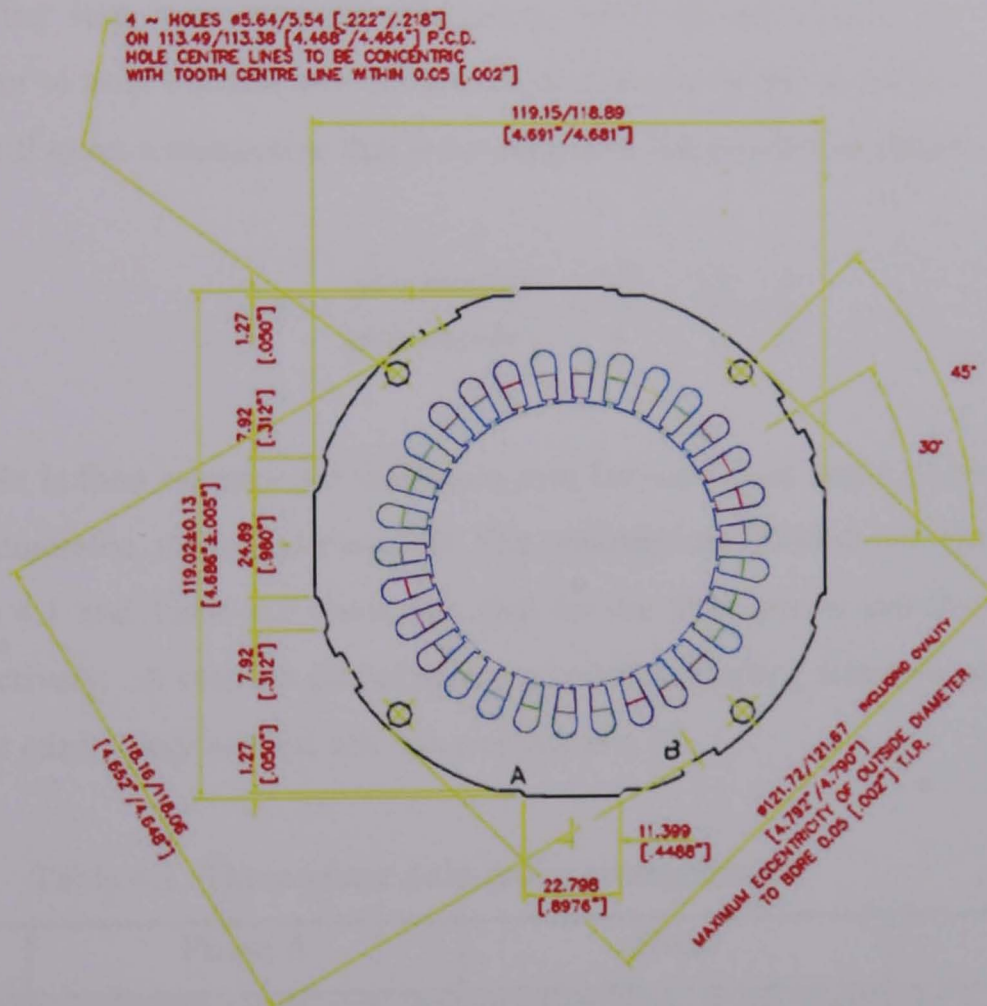 4 ~ HOLES ø5.64/5.54 [.222"/.218"]
ON 113.49/113.38 [4.468"/4.464"] P.C.D.
HOLE CENTRE LINES TO BE CONCENTRIC
WITH TOOTH CENTRE LINE WITHIN 0.05 [.002"]
119.15/118.89
[4.691"/4.681"]
1.27
[.050"]
7.92
[.312"]
119.02±0.13
[4.686"±.005"]
24.89
[.980"]
7.92
[.312"]
1.27
[.050"]
45°
30°
118.16/118.06
[4.652"/4.648"]
A
B
11.399
[.4488"]
22.798
[.8976"]
ø121.72/121.67 INCLUDING OVALITY
[4.792"/4.790"]
MAXIMUM ECCENTRICITY OF OUTSIDE DIAMETER
TO BORE 0.05 [.002"] T.I.R.